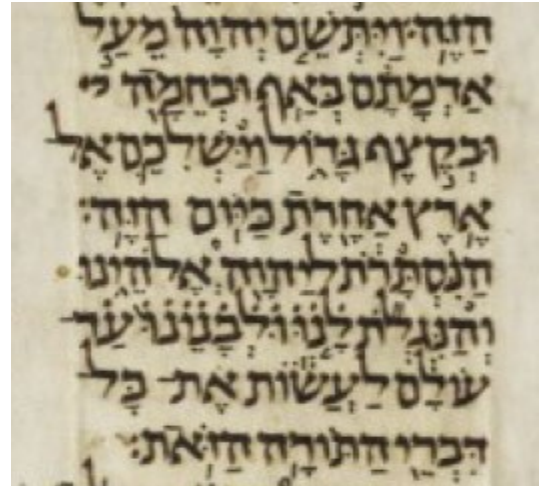 הַזֶּֽה׃ וַיִּתְּשֵׁ֤ם יְהוָה֙ מֵעַ֣ל
אַדְמָתָ֔ם בְּאַ֥ף וּבְחֵמָ֖ה
וּבְקֶ֣צֶף גָּד֑וֹל וַיַּשְׁלִכֵ֛ם אֶל־
אֶ֥רֶץ אַחֶ֖רֶת כַּיּ֥וֹם הַזֶּֽה׃
הַנִּ֨סְתָּרֹ֔ת לַיהוָ֖ה אֱלֹהֵ֑ינוּ
וְהַנִּגְלֹ֞ת לָ֤ׄנׄוּׄ וּׄלְׄבָׄנֵׄ֙יׄנׄוּׄ֙ עַׄד־
עוֹלָ֔ם לַעֲשׂ֕וֹת אֶת־ כָּל־
דִּבְרֵ֖י הַתּוֹרָ֥ה הַזֹּֽאת׃